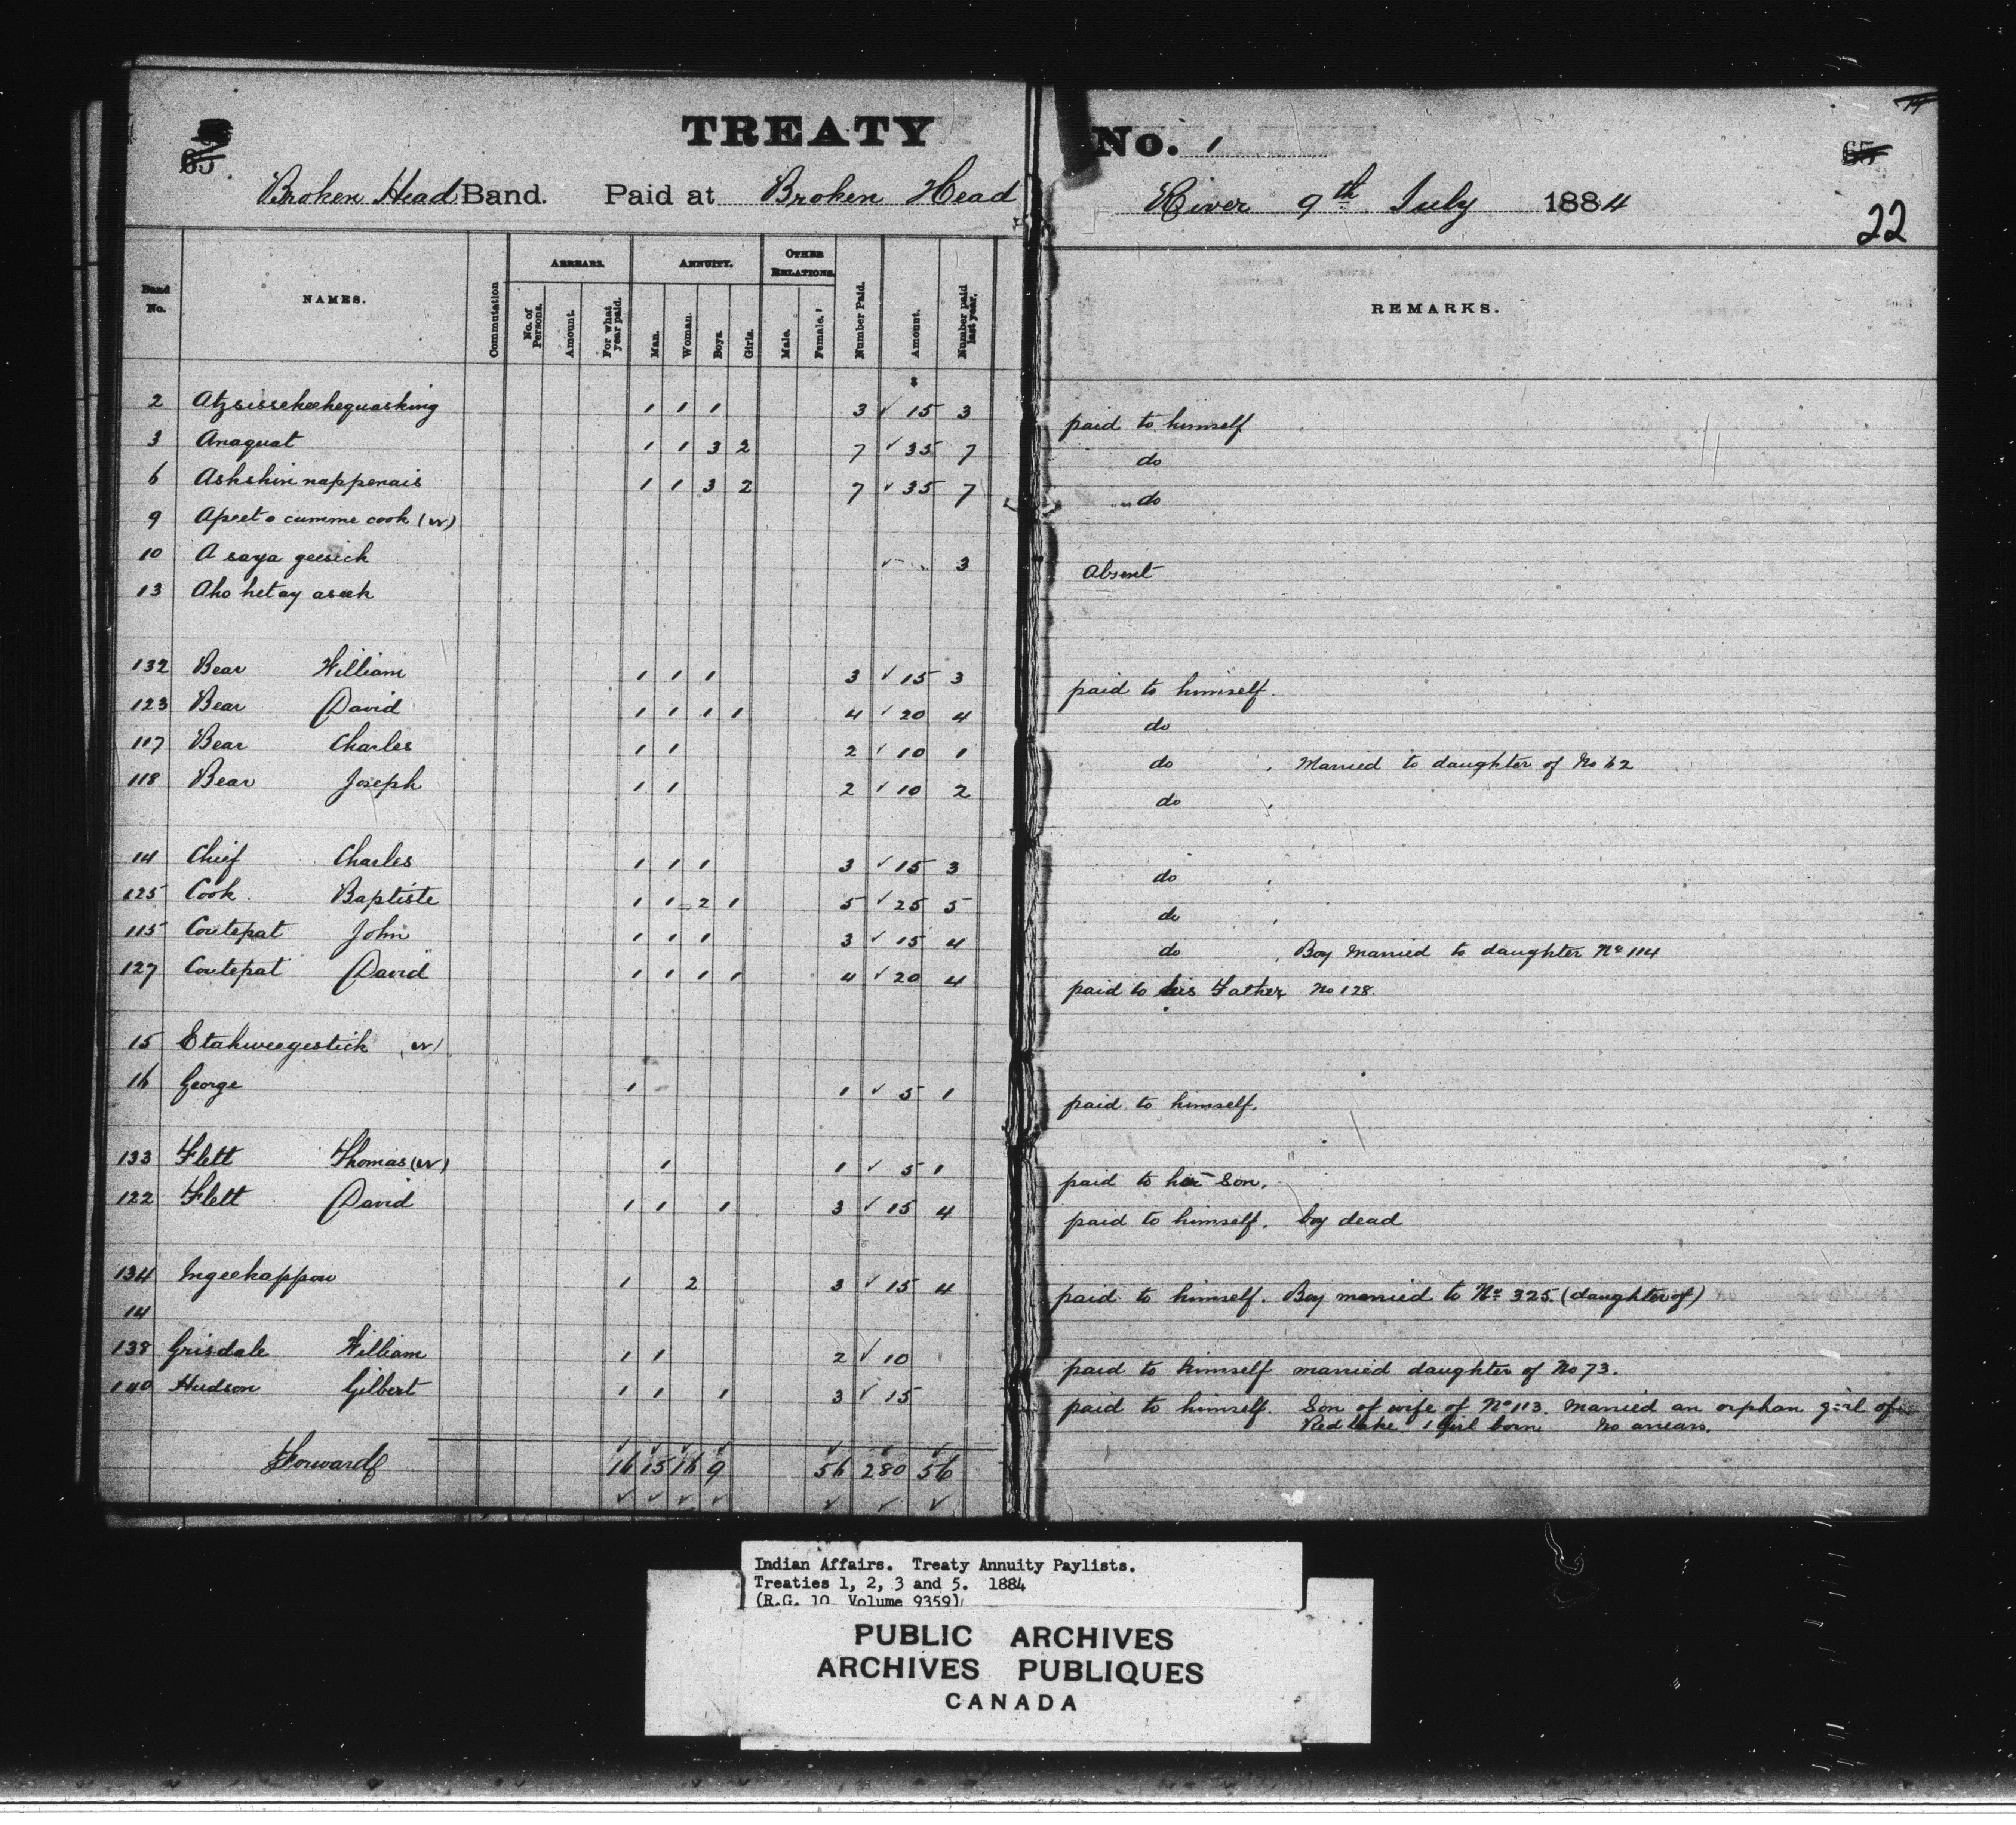 TREATY No. 1
65 65
Broken Head Band. Paid at Broken Head River 9th July 1884
22
Band No. NAMES. Commutation ARREARS. No. of Persons. Amount. For what year paid. ANNUITY. Man. Woman. Boys. Girls. OTHER RELATIONS. Male. Female. Number Paid. Amount. Number paid last year. REMARKS.
$
2 Atzsissekeehequasking 1 1 1 3 ✓ 15 3 paid to himself
3 Anaquat 1 1 3 2 7 ✓ 35 7 do
6 Ashshin nappenais 1 1 3 2 7 ✓ 35 7 " do
9 Apeet o cumme cook (w)
10 A saya geesick ✓ 3 Absent
13 Aho het ay aseek
132 Bear William 1 1 1 3 ✓ 15 3 paid to himself.
123 Bear David 1 1 1 1 4 ✓ 20 4 do
117 Bear Charles 1 1 2 ✓ 10 1 do , Married to daughter of No 62
118 Bear Joseph 1 1 2 ✓ 10 2 do
14 Chief Charles 1 1 1 3 ✓ 15 3 do
125 Cook Baptiste 1 1 2 1 5 ✓ 25 5 do
115 Coutepat John 1 1 1 3 ✓ 15 4 do , Boy Married to daughter No 114
127 Coutepat David 1 1 1 1 4 ✓ 20 4 paid to his Father No 128.
15 Etahweegestick (w)
16 George 1 1 ✓ 5 1 paid to himself.
133 Flett Thomas (w) 1 1 ✓ 5 1 paid to her Son.
122 Flett David 1 1 1 3 ✓ 15 4 paid to himself. boy dead
134 Ingeekappow 1 2 3 ✓ 15 4 paid to himself. Boy married to No 325. (daughter of)
14
138 Grisdale William 1 1 2 ✓ 10 paid to himself married daughter of No 73.
140 Hudson Gilbert 1 1 1 3 ✓ 15 paid to himself. Son of wife of No 113. Married an orphan girl of
Red lake. 1 Girl born. No arrears.
Forward 16 15 16 9 56 280 56
Indian Affairs. Treaty Annuity Paylists.
Treaties 1, 2, 3 and 5. 1884
(R.G. 10 Volume 9359)
PUBLIC ARCHIVES
ARCHIVES PUBLIQUES
CANADA